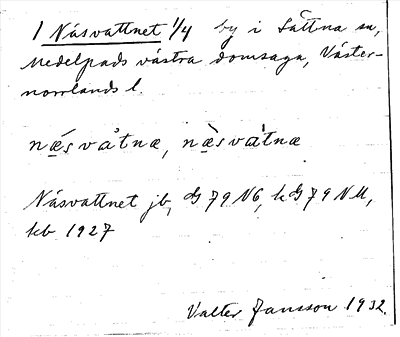 1 Näsvattnet 1/4 by i Sättna sn,
Medelpads västra domsaga, Väster-
norrlands l.
næ´sva`tnæ, næ`sva`tnæ
Näsvattnet jb, GS 79 NG, kGS 79 NU,
kb 1927
Valter Jansson 1932.